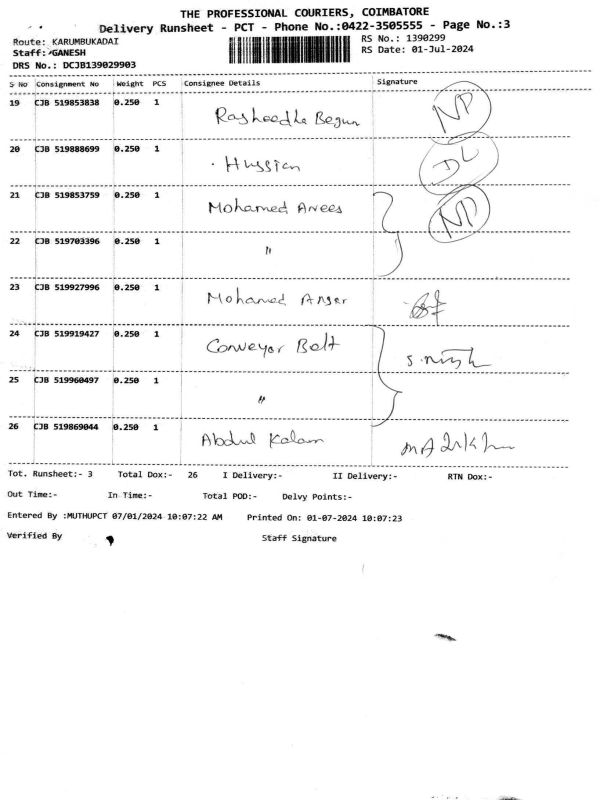 THE PROFESSIONAL COURIERS, COIMBATORE
Delivery Runsheet - PCT - Phone No.:0422-3505555 - Page No.:3
Route: KARUMBUKADAI RS No.: 1390299
Staff: GANESH RS Date: 01-Jul-2024
DRS No.: DCJB139029903
S No Consignment No Weight PCS Consignee Details Signature
19 CJB 519853838 0.250 1 Rasheedha Begum NP
20 CJB 519888699 0.250 1 Hussian DL
21 CJB 519853759 0.250 1 Mohamed Anees NP
22 CJB 519703396 0.250 1 "
23 CJB 519927996 0.250 1 Mohamed Anser
24 CJB 519919427 0.250 1 Conveyor Belt
25 CJB 519960497 0.250 1 "
26 CJB 519869044 0.250 1 Abdul Kalam
Tot. Runsheet:- 3 Total Dox:- 26 I Delivery:- II Delivery:- RTN Dox:-
Out Time:- In Time:- Total POD:- Delvy Points:-
Entered By :MUTHUPCT 07/01/2024 10:07:22 AM Printed On: 01-07-2024 10:07:23
Verified By Staff Signature